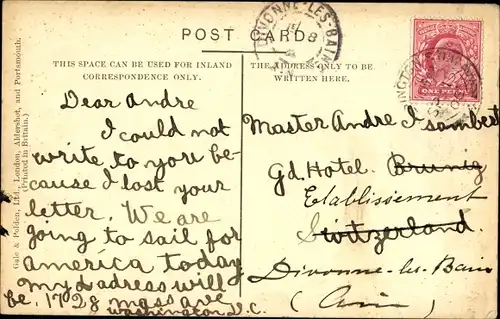 POST CARD.
DIVONNE-LES-BAINS
ONE PENNY
THIS SPACE CAN BE USED FOR INLAND
CORRESPONDENCE ONLY.
THE ADDRESS ONLY TO BE
WRITTEN HERE.
Gale & Polden, Ltd., London, Aldershot, and Portsmouth.
(Printed in Britain.)
Dear Andre
I could not
write to you be-
cause I lost your
letter. We are
going to sail for
america today
My adress will
be. 1728 mass ave
washington D.C.
Master Andre Isambert
Gd. Hotel. Brunig
Etablissement
Switzerland.
Divonne-les-Bain
(Ain)